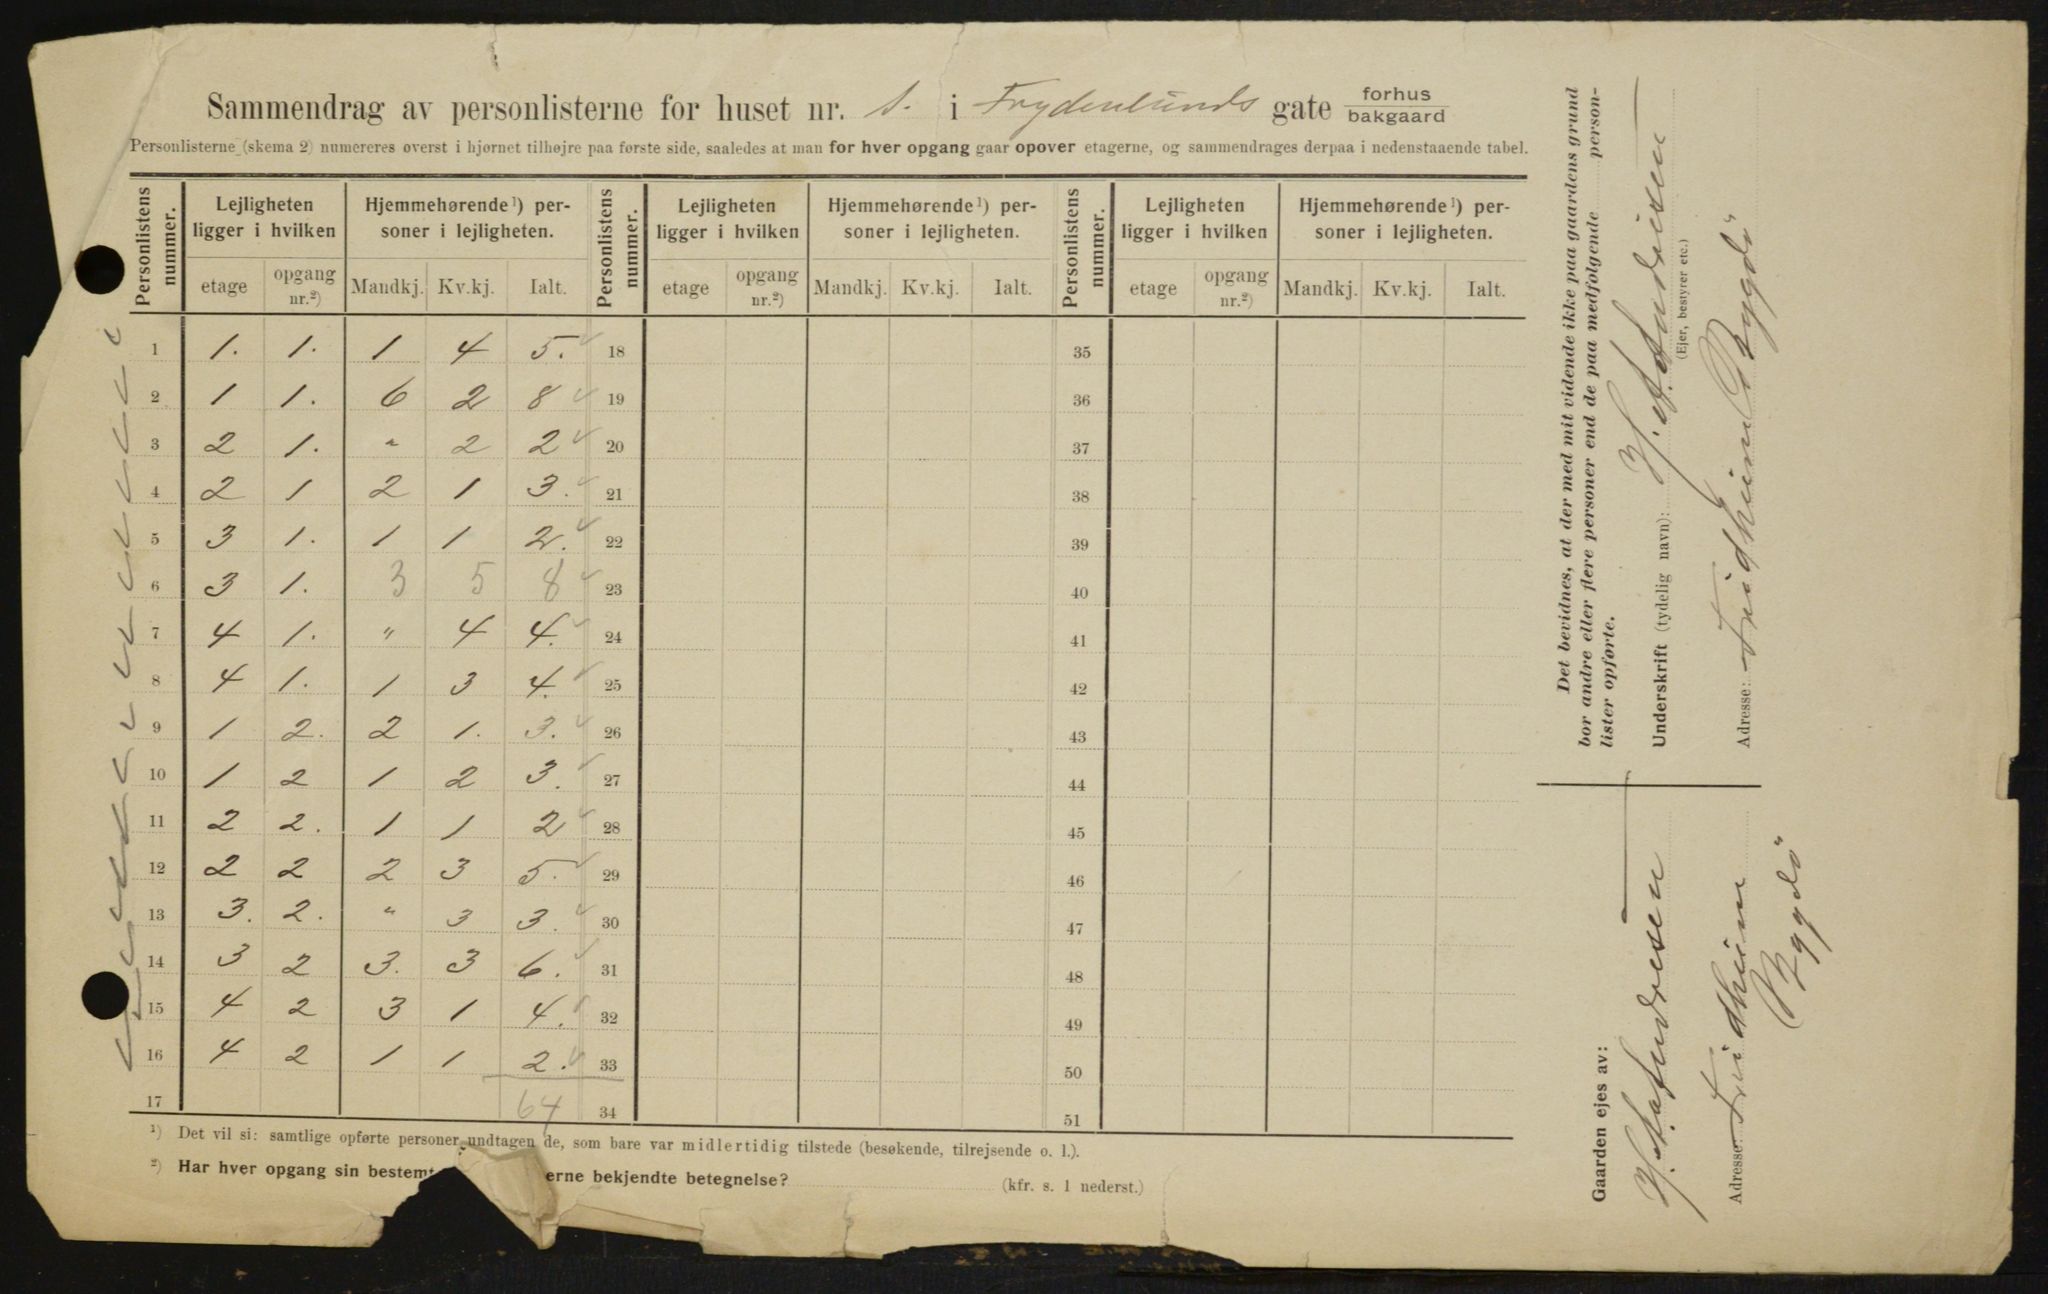 Sammendrag av personlisterne for huset nr. 1. i Frydenlunds gate forhus
bakgaard
Personlisterne (skema 2) numereres øverst i hjørnet tilhøjre paa første side, saaledes at man for hver opgang gaar opover etagerne, og sammendrages derpaa i nedenstaaende tabel.
Personlistens nummer. Lejligheten ligger i hvilken Hjemmehørende¹) personer i lejligheten. Personlistens nummer. Lejligheten ligger i hvilken Hjemmehørende¹) personer i lejligheten. Personlistens nummer. Lejligheten ligger i hvilken Hjemmehørende¹) personer i lejligheten.
etage opgang nr.²) Mandkj. Kv.kj. Ialt. etage opgang nr.²) Mandkj. Kv.kj. Ialt. etage opgang nr.²) Mandkj. Kv.kj. Ialt.
1 1. 1. 1 4 5. 18 35
2 1 1. 6 2 8 19 36
3 2 1. " 2 2 20 37
4 2 1 2 1 3. 21 38
5 3 1. 1 1 2. 22 39
6 3 1. 3 5 8 23 40
7 4 1. " 4 4. 24 41
8 4 1. 1 3 4. 25 42
9 1 2. 2 1. 3. 26 43
10 1 2 1 2 3. 27 44
11 2 2. 1 1 2 28 45
12 2 2 2 3 5. 29 46
13 3. 2. " 3 3. 30 47
14 3 2 3. 3 6. 31 48
15 4 2 3 1 4. 32 49
16 4 2 1 1 2. 33 50
17 64 34 51
¹) Det vil si: samtlige opførte personer undtagen de, som bare var midlertidig tilstede (besøkende, tilrejsende o. l.).
²) Har hver opgang sin bestemt erne bekjendte betegnelse? (kfr. s. 1 nederst.)
Det bevidnes, at der med mit vidende ikke paa gaardens grund
bor andre eller flere personer end de paa medfølgende person-
lister opførte.
Underskrift (tydelig navn): H. A. Andresen
(Ejer, bestyrer etc.)
Adresse: Fridheim Bygdö
Gaarden ejes av:
H. A. Andresen
Adresse Fridheim
Bygdö